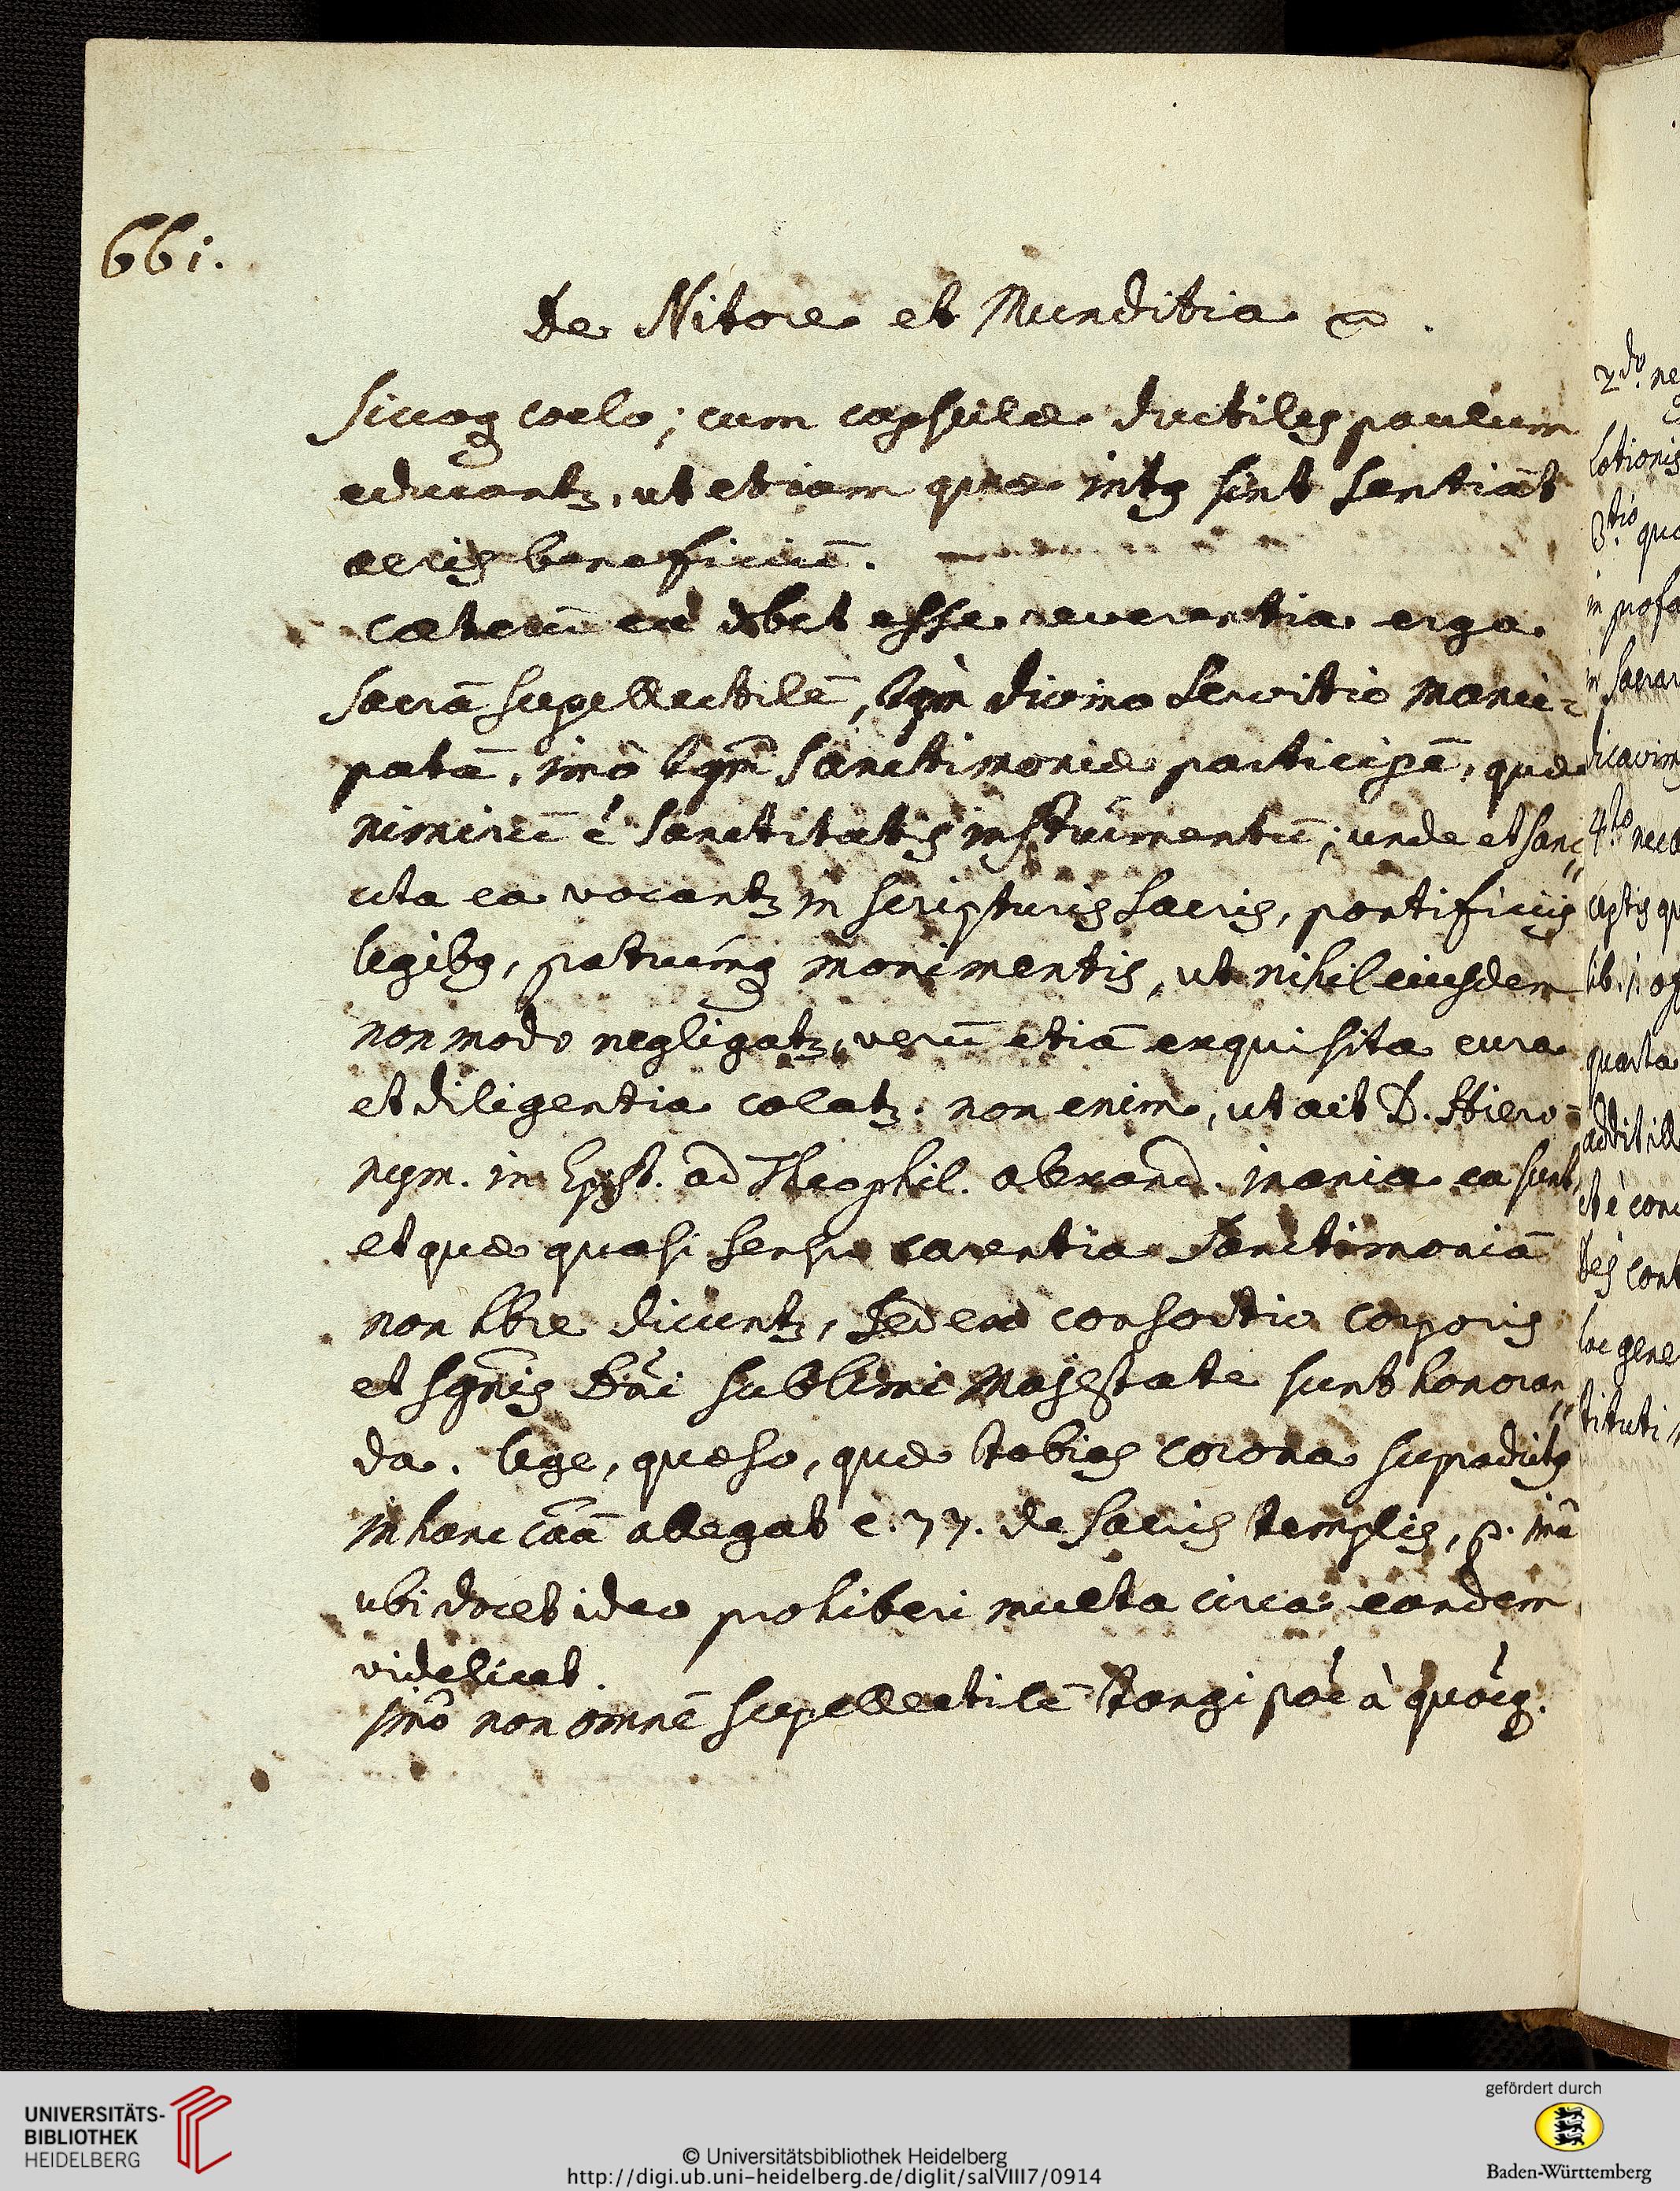 661.
De Nitore et Munditia
siccoq coelo; cum capsulae ductiles paulum
educantz, ut etiam quae intq sint sentiāt
aeris beneficiū.
caeterū ea debet esse reverentia erga
sacrā supellectilē, tqm̄ divino servitio manci-
patā, imò tqm̄ sanctimoniae participē, quae
nimirū ē sanctitatis instrumentū; unde et sanc„
cita ea vocantz in scripturis sacris, pontificiis
legibq, patrumq monimentis, ut nihil eiusdem
non modo negligatz, verū etiā exquisita cura
et diligentia colatz. non enim, ut ait D. Hiero-
nym. in Epist. ad Theophil. alexand. inania ea sunt,
et quae quasi sensu carentia sanctimoniā
non hb̄re dicuntz, sed ex consortio corporis
et sg̅nis Dn̄i sublimi Majestate sunt honoran„
da. lege, quaeso, quae tobias corona supradictq
in hanc cāā allegat c. 77. de sacris templis, p. mā
ubi docet ideo prohiberi multa circa eandem
videlicet.
jmō non omnē supellectilē tangi pōē à quōcq.
2do. ne
Lotionis
3tio. quo
in profa
in sacrar
dicavim
4to. nec a
ceptis qu
lib. 1. of
quarta
addit ill
et è conc
des cont
loc gene
tituti
UNIVERSITÄTS-
BIBLIOTHEK
HEIDELBERG
© Universitätsbibliothek Heidelberg
http://digi.ub.uni-heidelberg.de/diglit/salVIII7/0914
gefördert durch
Baden-Württemberg